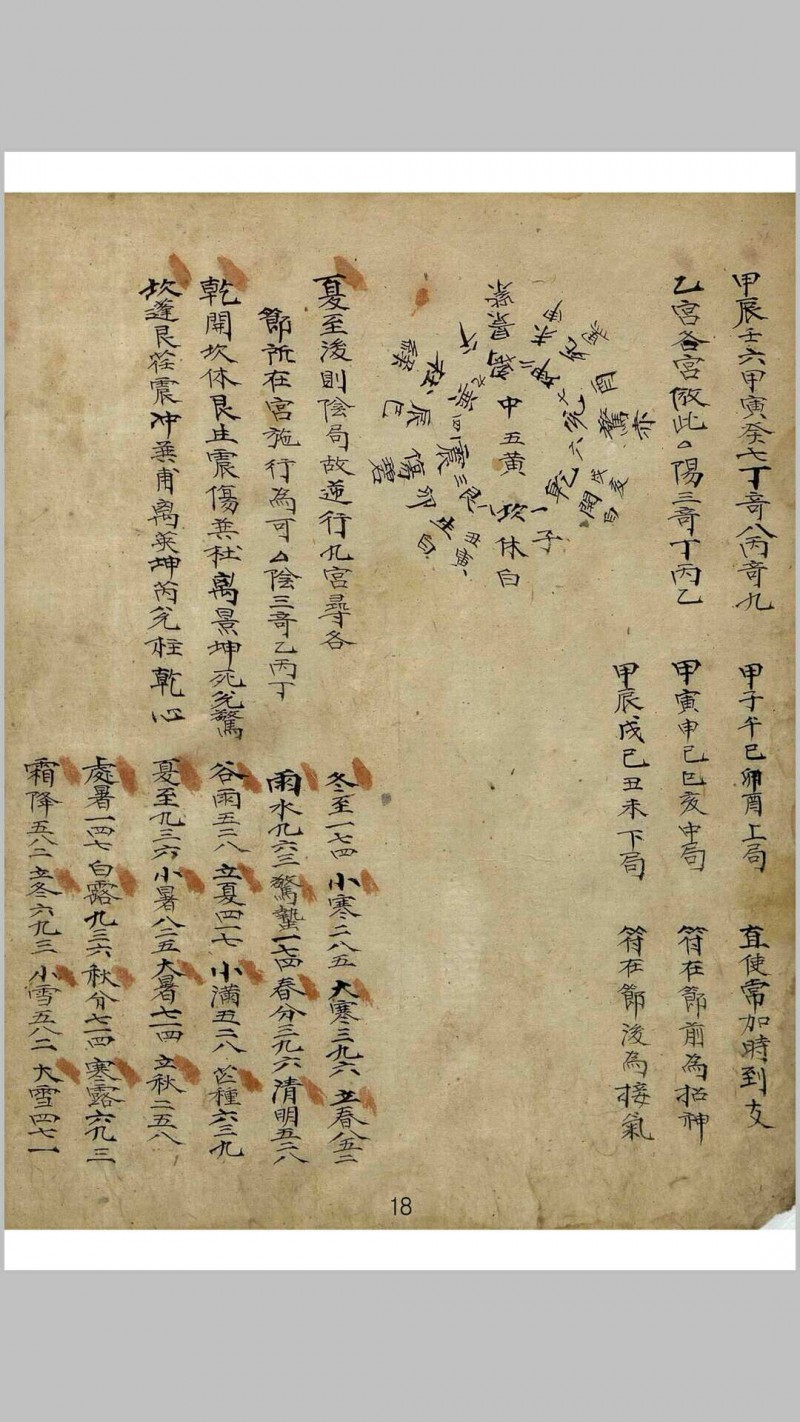 甲辰壬六甲寅癸七丁竒八丙竒九
甲子午己卯酉上局
直使常加時到支
乙宮各宮倣此△陽三竒丁丙乙
甲寅申己巳亥中局
符在節前為招神
甲辰戌己丑未下局
符在節後為接氣
中五黃
坎休白
一
子
乾
六
開
白
戌亥
兌
七
驚
赤
酉
坤
二
死
未申
離
紫
巽
四
杜
辰巳
震
三
傷
碧
卯
艮
生
白
丑寅
夏至後則陰局故逆行九宮尋各
節所在宮施行為可△陰三竒乙丙丁
乾開坎休艮生震傷巽杜离景坤死兌驚
坎蓬艮任震冲巽甫离英坤芮兌柱乾心
冬至一七四小寒二八五大寒三九六立春八五二
雨水九六三驚蟄一七四春分三九六清明五二八
谷雨五二八立夏四一七小滿五二八芒種六三九
夏至九三六小暑八二五大暑七一四立秋二五八
處暑一四七白露九三六秋分七一四寒露六九三
霜降五八二立冬六九三小雪五八二大雪四七一
18